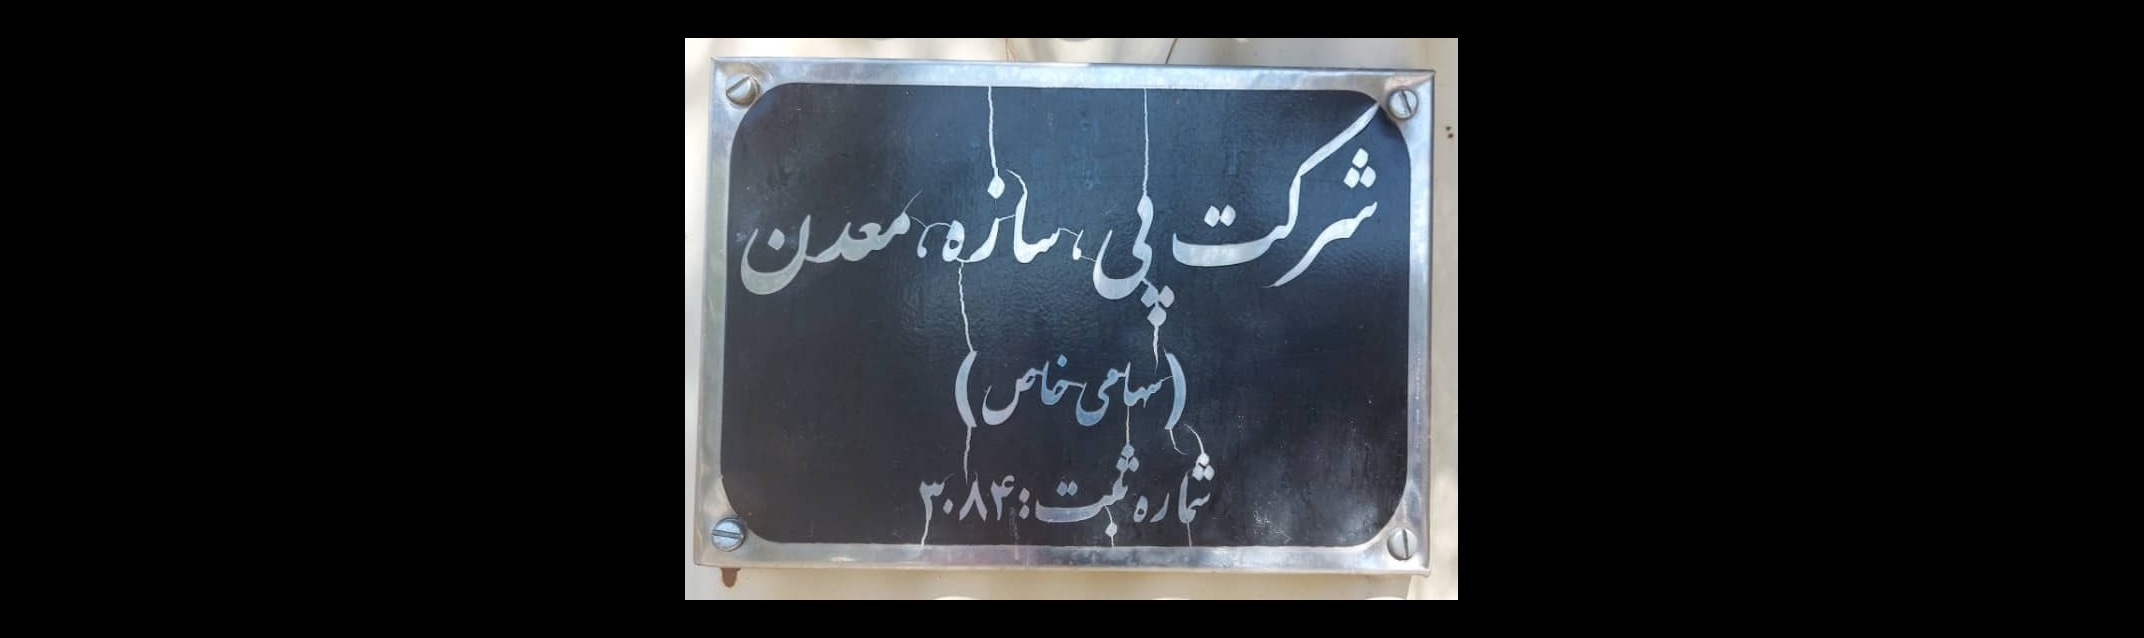 شرکت پی، سازه، معدن
(سهامی خاص)
شماره ثبت: ۳۰۸۴